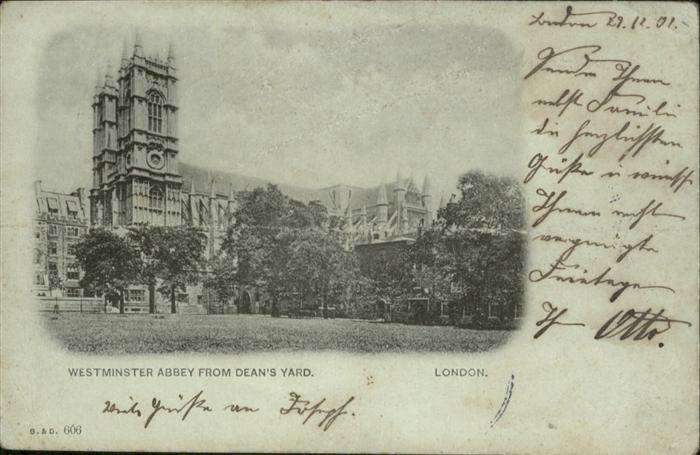 London 22.12.01.
Sende Ihnen
nebst Familie
die herzlichsten
Grüße u wünsche
Ihnen recht
vergnügte
Feiertage
Ihr Otto.
WESTMINSTER ABBEY FROM DEAN'S YARD.
LONDON.
Viele Grüße an Joseph.
G. & D. 606